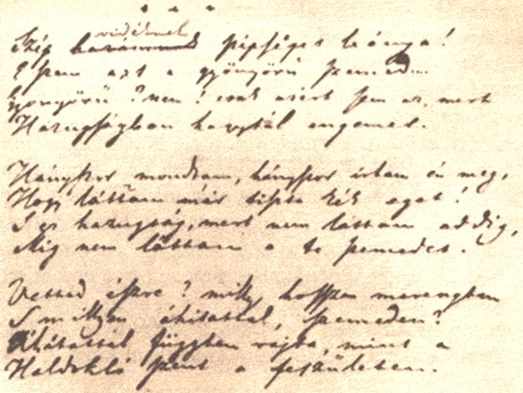 * * *
vidéknek
Szép szépséges leánya!
E szem azt a gyönyörü szemed...
Gyönyörü? nem! csak azért sem az, mert
Hazugságban hagytál engemet.
Hányszor mondtam, hányszor irtam én meg,
Hogy láttam már tiszta kék eget!
S ez hazugság, mert nem láttam addig,
Mig nem láttam a te szemedet.
Vetted észre? milly hosszan merengtem
S millyen áhitattal, szemeden?
Áhitattal függtem rajta, mint a
Haldokló szent a feszületen.